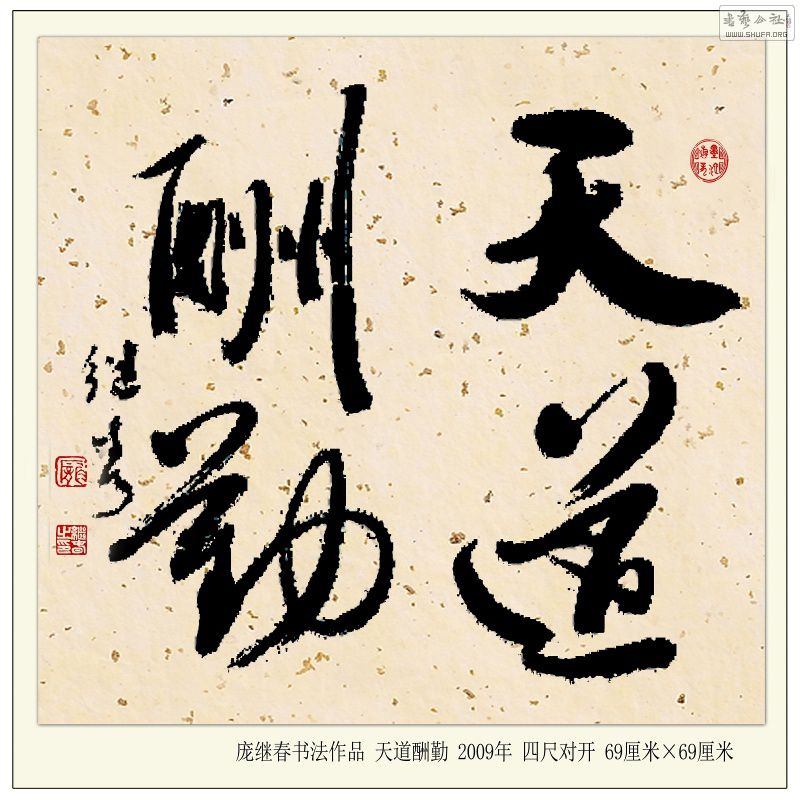 書藝公社
WWW.SHUFA.ORG
天道
酬勤
继春
庞继春书法作品 天道酬勤 2009年 四尺对开 69厘米×69厘米